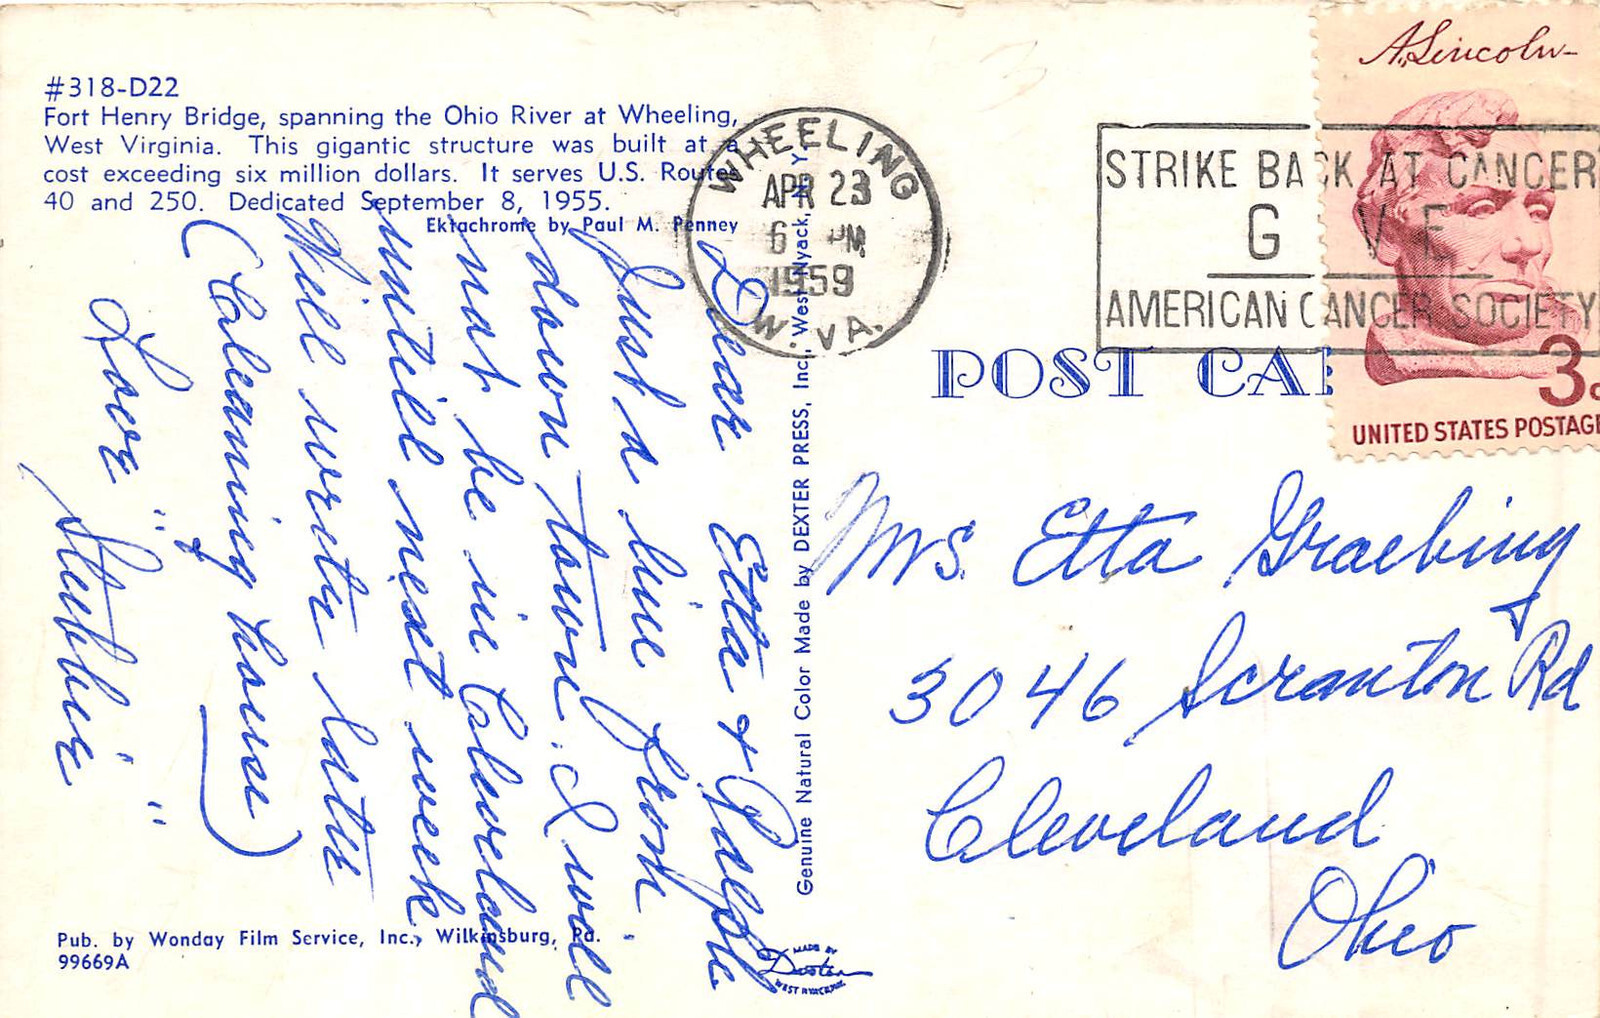 #318-D22
Fort Henry Bridge, spanning the Ohio River at Wheeling,
West Virginia. This gigantic structure was built at a
cost exceeding six million dollars. It serves U.S. Routes
40 and 250. Dedicated September 8, 1955.
Ektachrome by Paul M. Penney
Dear Etta &
Just a line from
down town. I will
not be in Cleveland
until next week
Will write late
(Cleaning house)
Love
"Stubbie"
Pub. by Wonday Film Service, Inc., Wilkinsburg, Pa.
99669A
Genuine Natural Color Made by DEXTER PRESS, Inc., West Nyack, N Y
MADE BY
Dexter
WEST NYACK, N.Y.
WHEELING
APR 23
6 PM
1959
W. VA.
STRIKE BACK AT CANCER
GIVE
AMERICAN CANCER SOCIETY
A. Lincoln
3c
UNITED STATES POSTAGE
POST CAR
Mrs. Etta Graebing
3046 Scranton Rd
Cleveland
Ohio